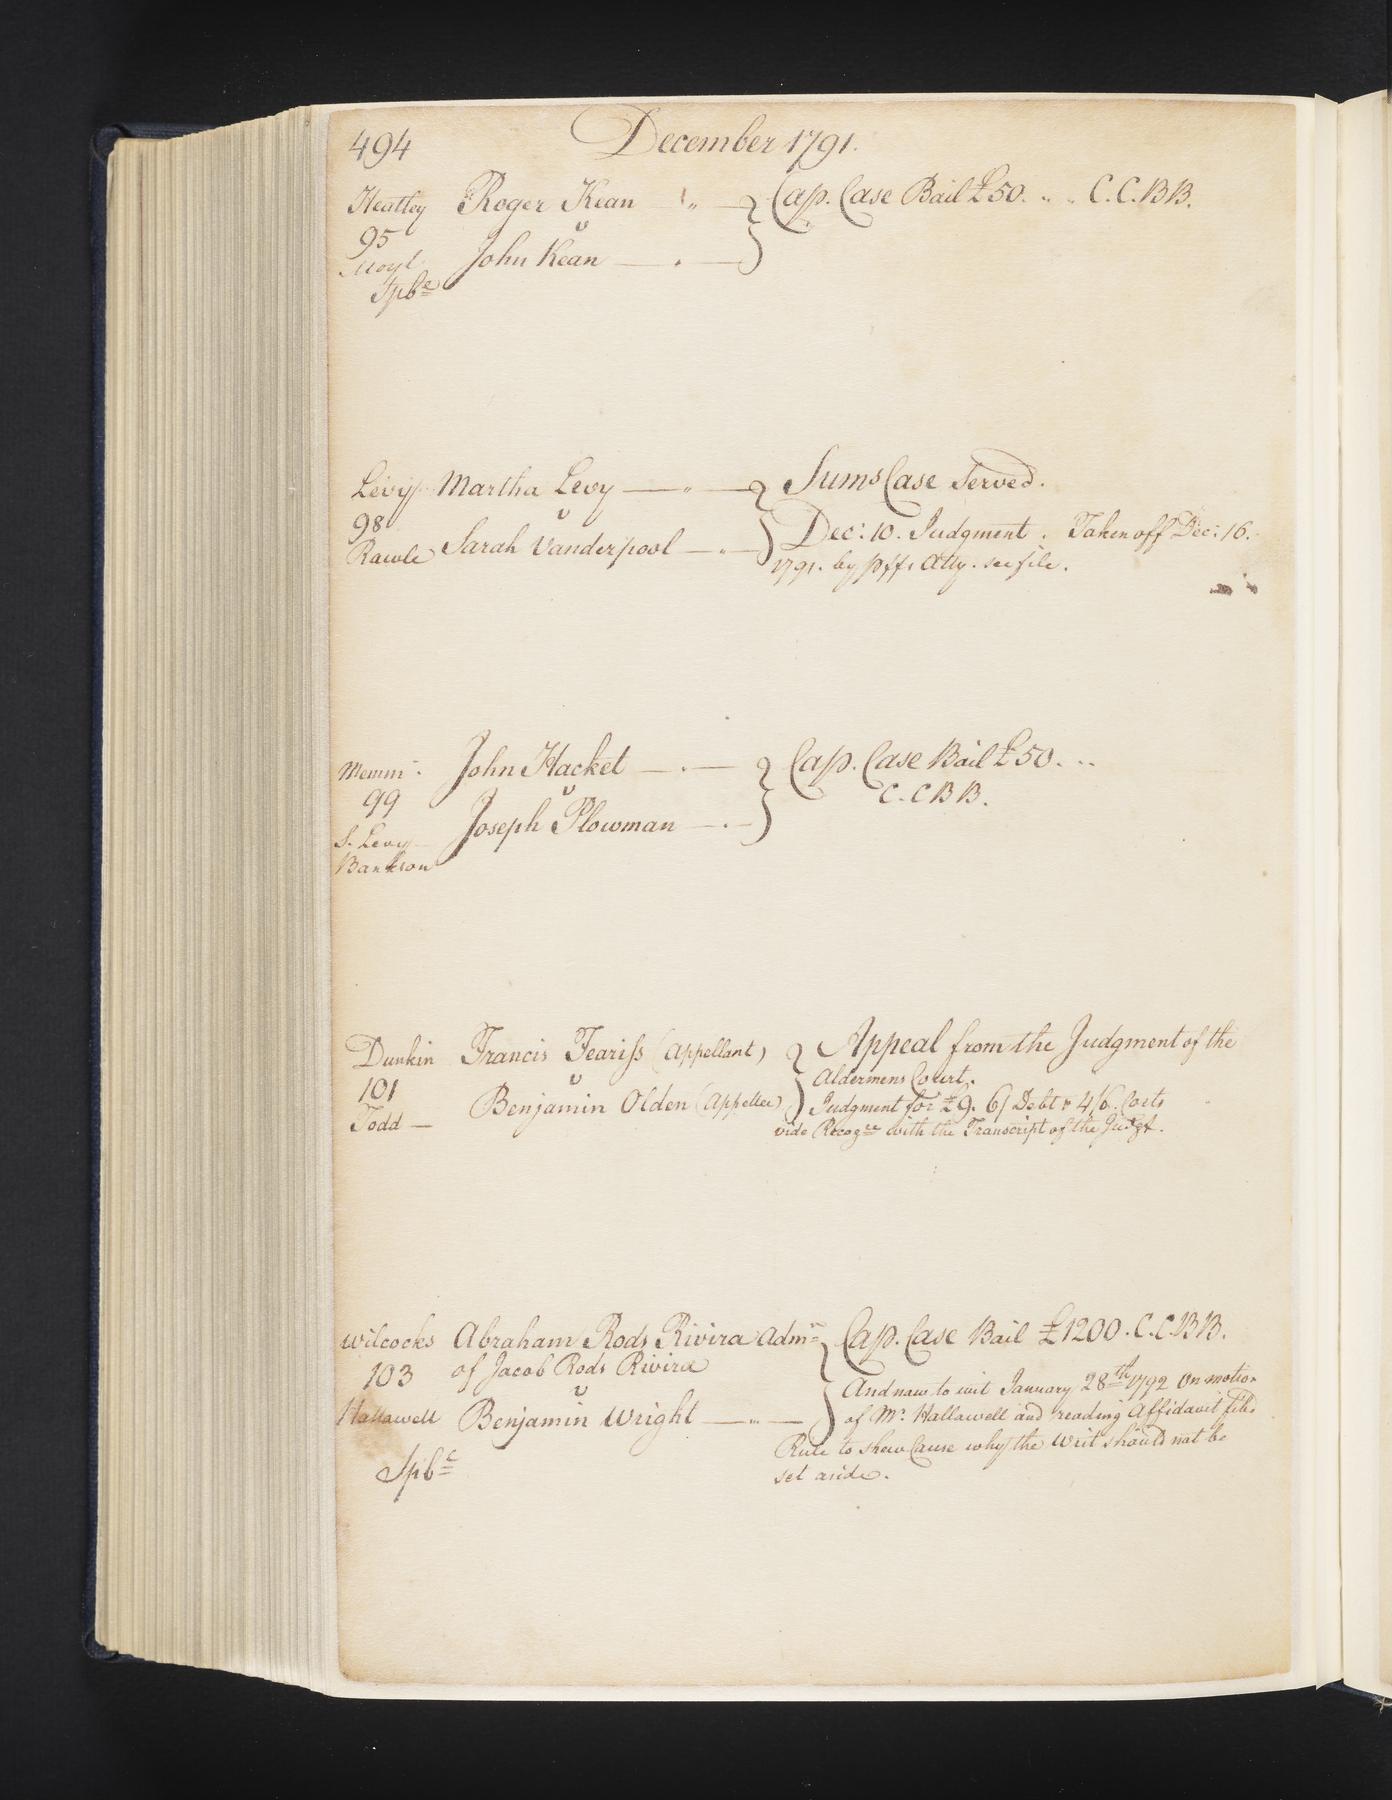 494 December 1791.
Heatley Roger Kean Cap. Case Bail £50. C.C.B B.
95 v
Moyl. John Kean
Spbe
Levy Martha Levy Sums Case Served.
98 v Dec: 10. Judgment. Taken off Dec: 16.
Rawle Sarah Vanderpool 1791. by pffs Atty. see file.
Memm: John Hacket Cap. Case Bail £50.
99 v C. C B B.
S. Levy Joseph Plowman
Bankson
Dunkin Francis Feariss (Appellant) Appeal from the Judgment of the
101 v Aldermens Court.
Todd Benjamin Olden (Appellee) Judgment for £9. 6/ Debt & 4/6. Costs
vide Recogce with the Transcript of the Judgt.
Wilcocks Abraham Rods Rivira Admr Cap. Case Bail £1200. C.C.B B.
103 of Jacob Rods Rivira
v And now to wit January 28th 1792 On motion
Hallawell Benjamin Wright of Mr. Hallawell and reading Affidavit filed
Rule to shew Cause why the Writ should not be
Spbe set aside.